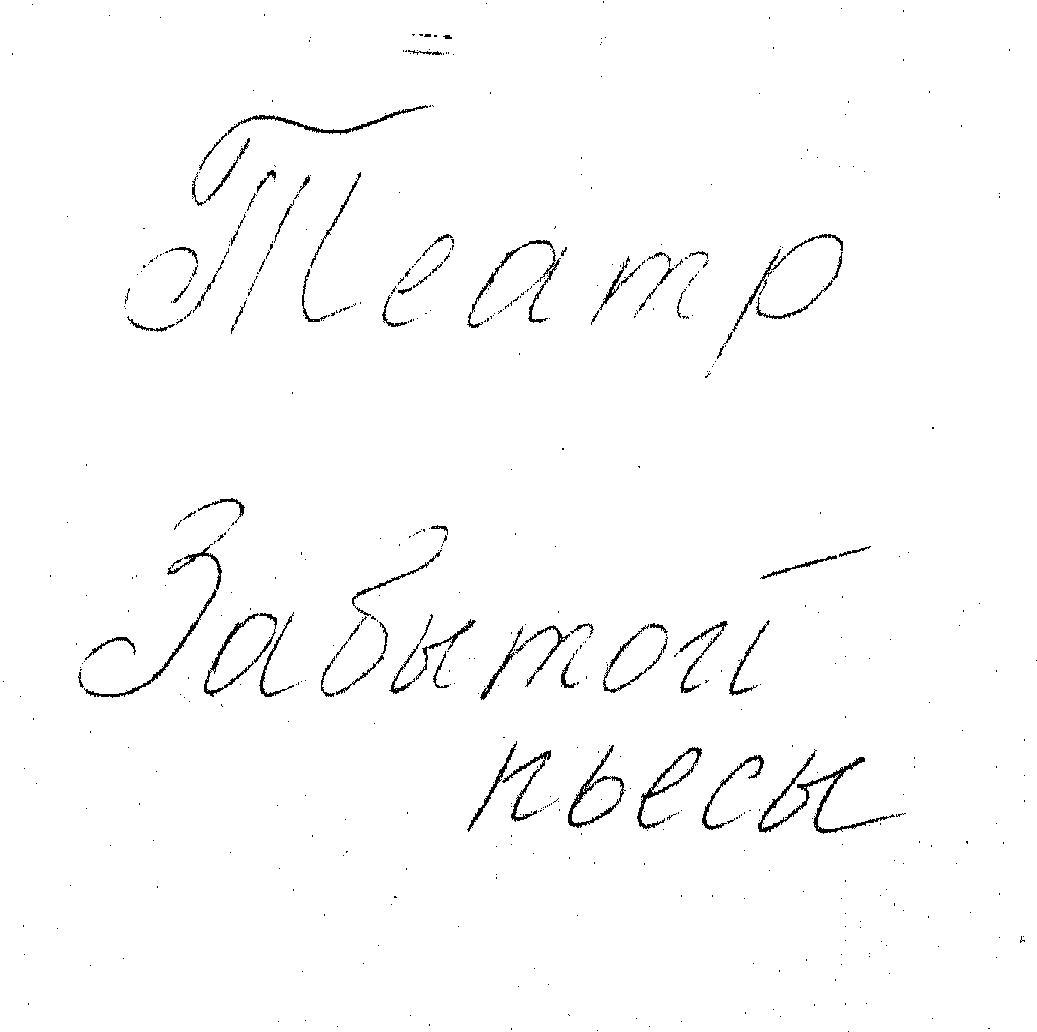 Театр
Забытой
пьесы